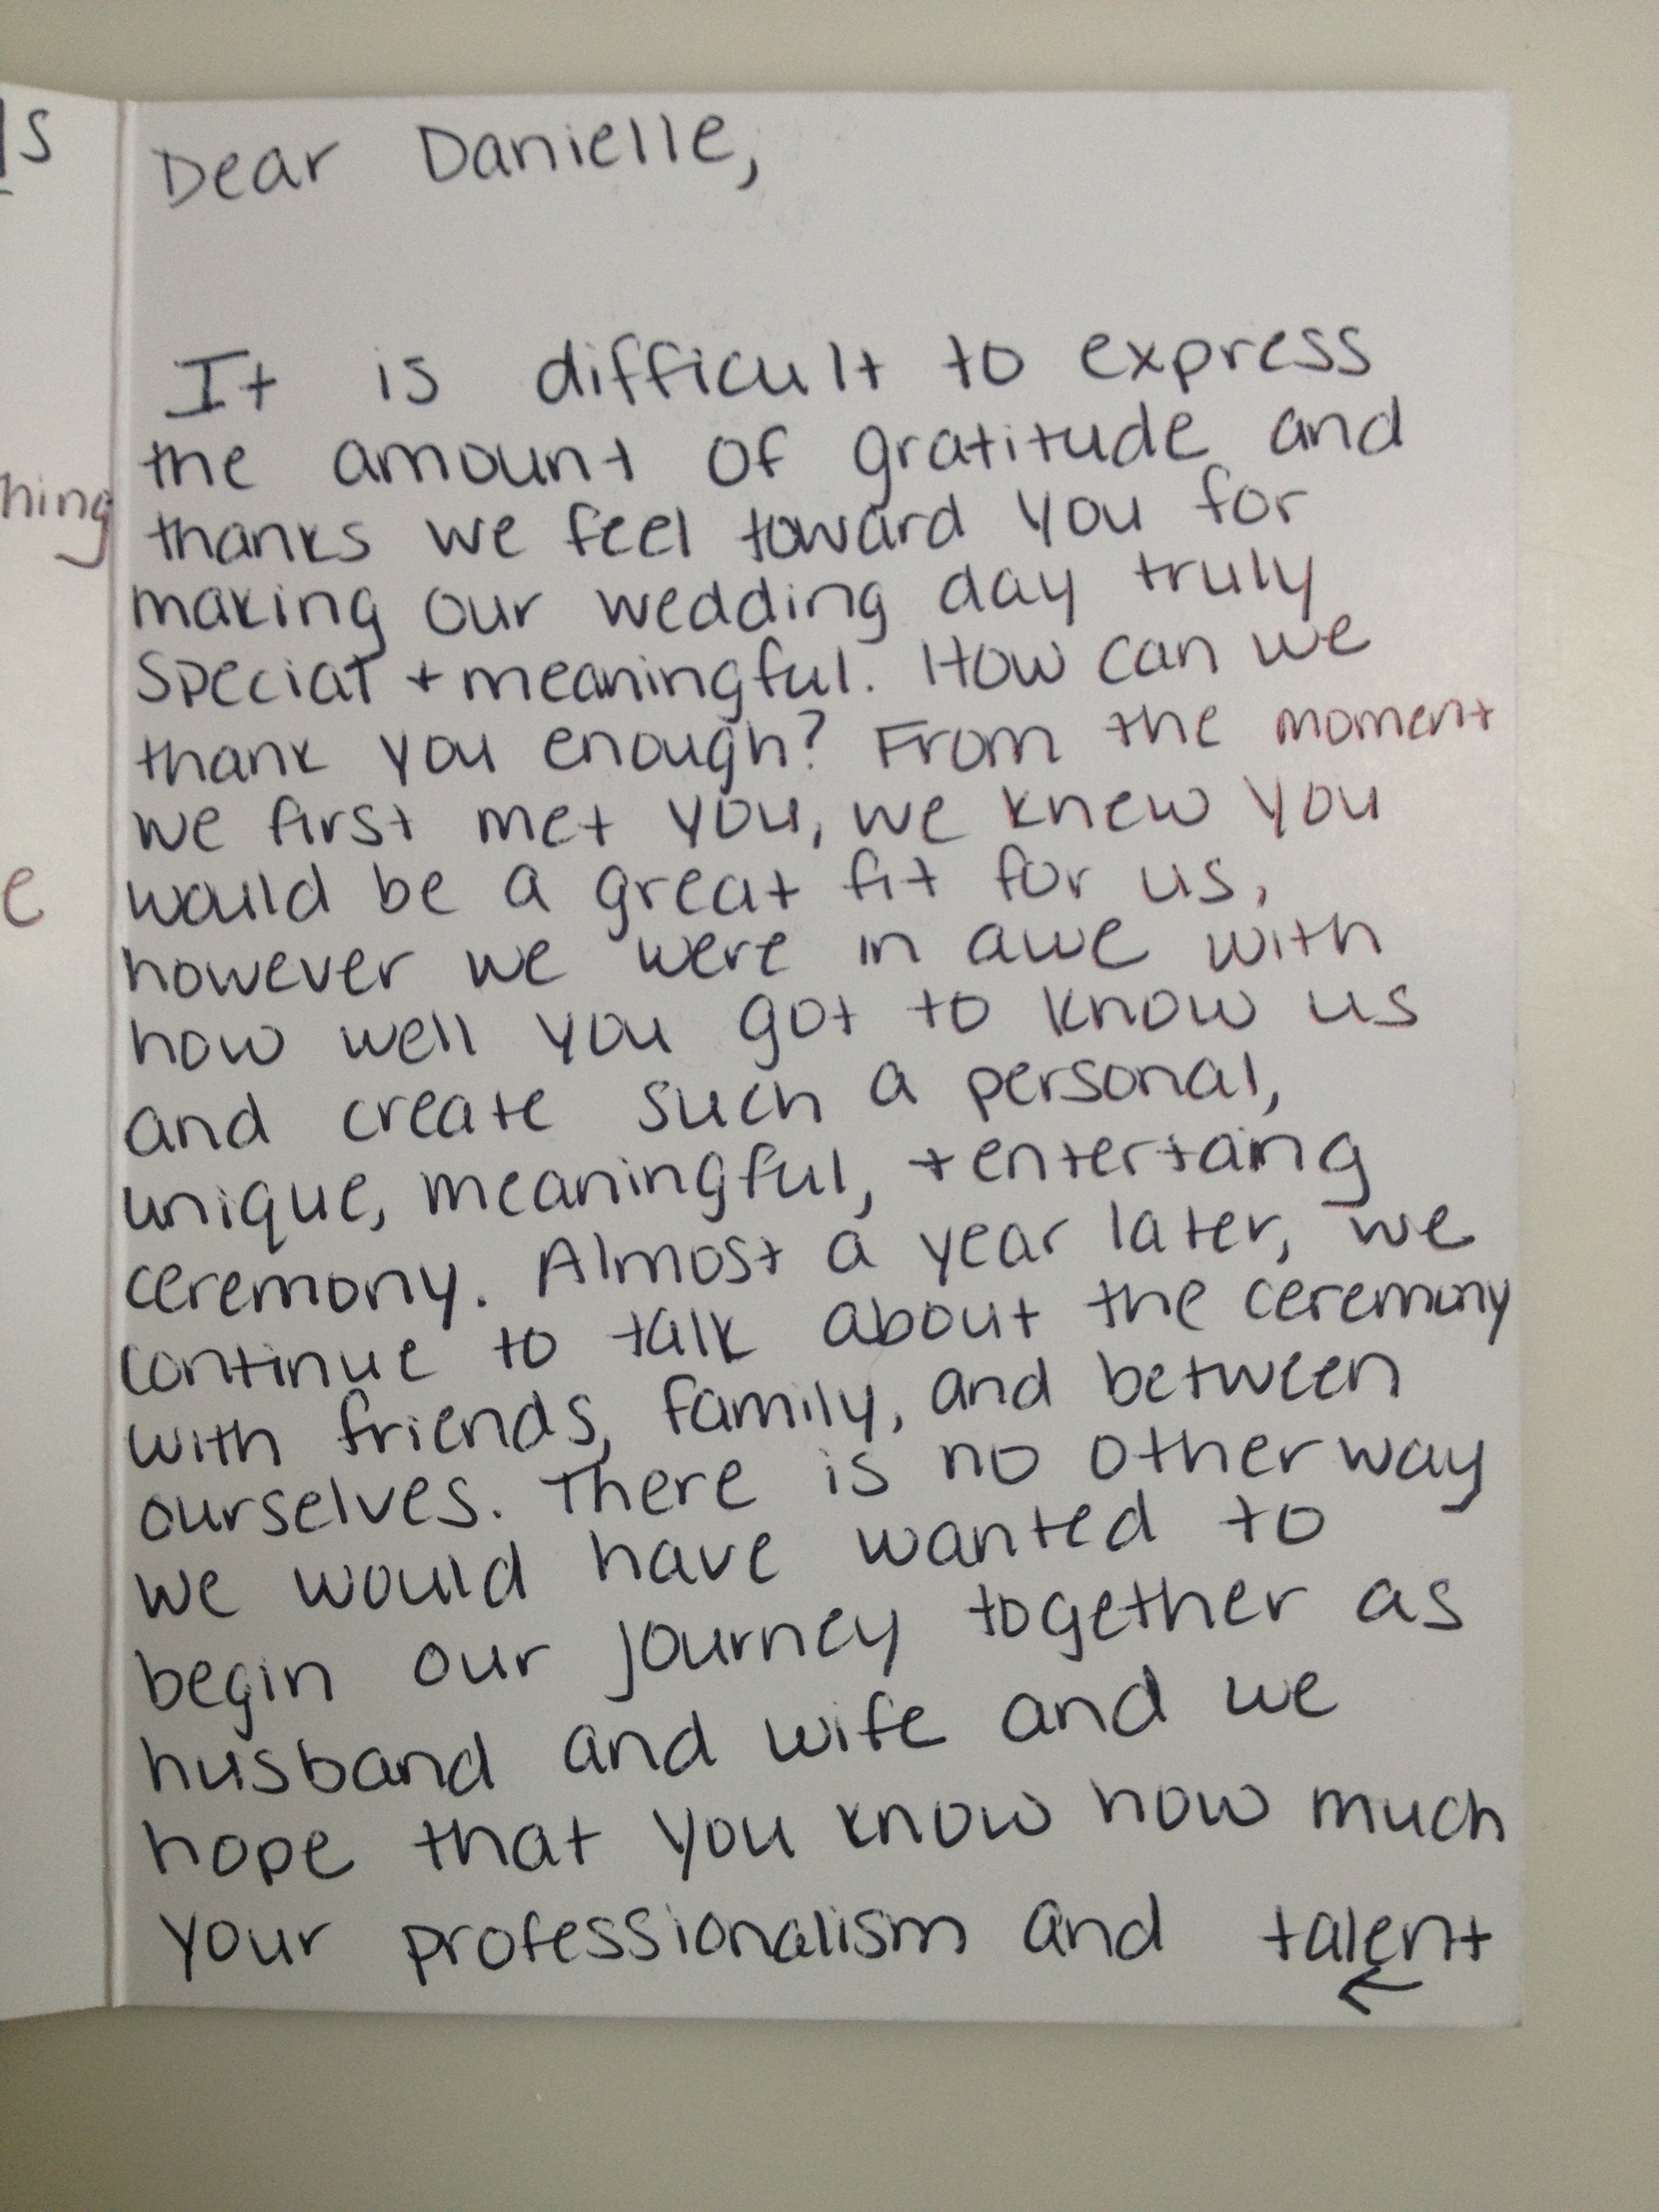 Dear Danielle,
It is difficult to express
the amount of gratitude and
thanks we feel toward you for
making our wedding day truly
special + meaningful. How can we
thank you enough? From the moment
we first met you, we knew you
would be a great fit for us,
however we were in awe with
how well you got to know us
and create such a personal,
unique, meaningful, + entertaing
ceremony. Almost a year later, we
continue to talk about the ceremony
with friends, family, and between
ourselves. There is no other way
we would have wanted to
begin our journey together as
husband and wife and we
hope that you know how much
your professionalism and talent